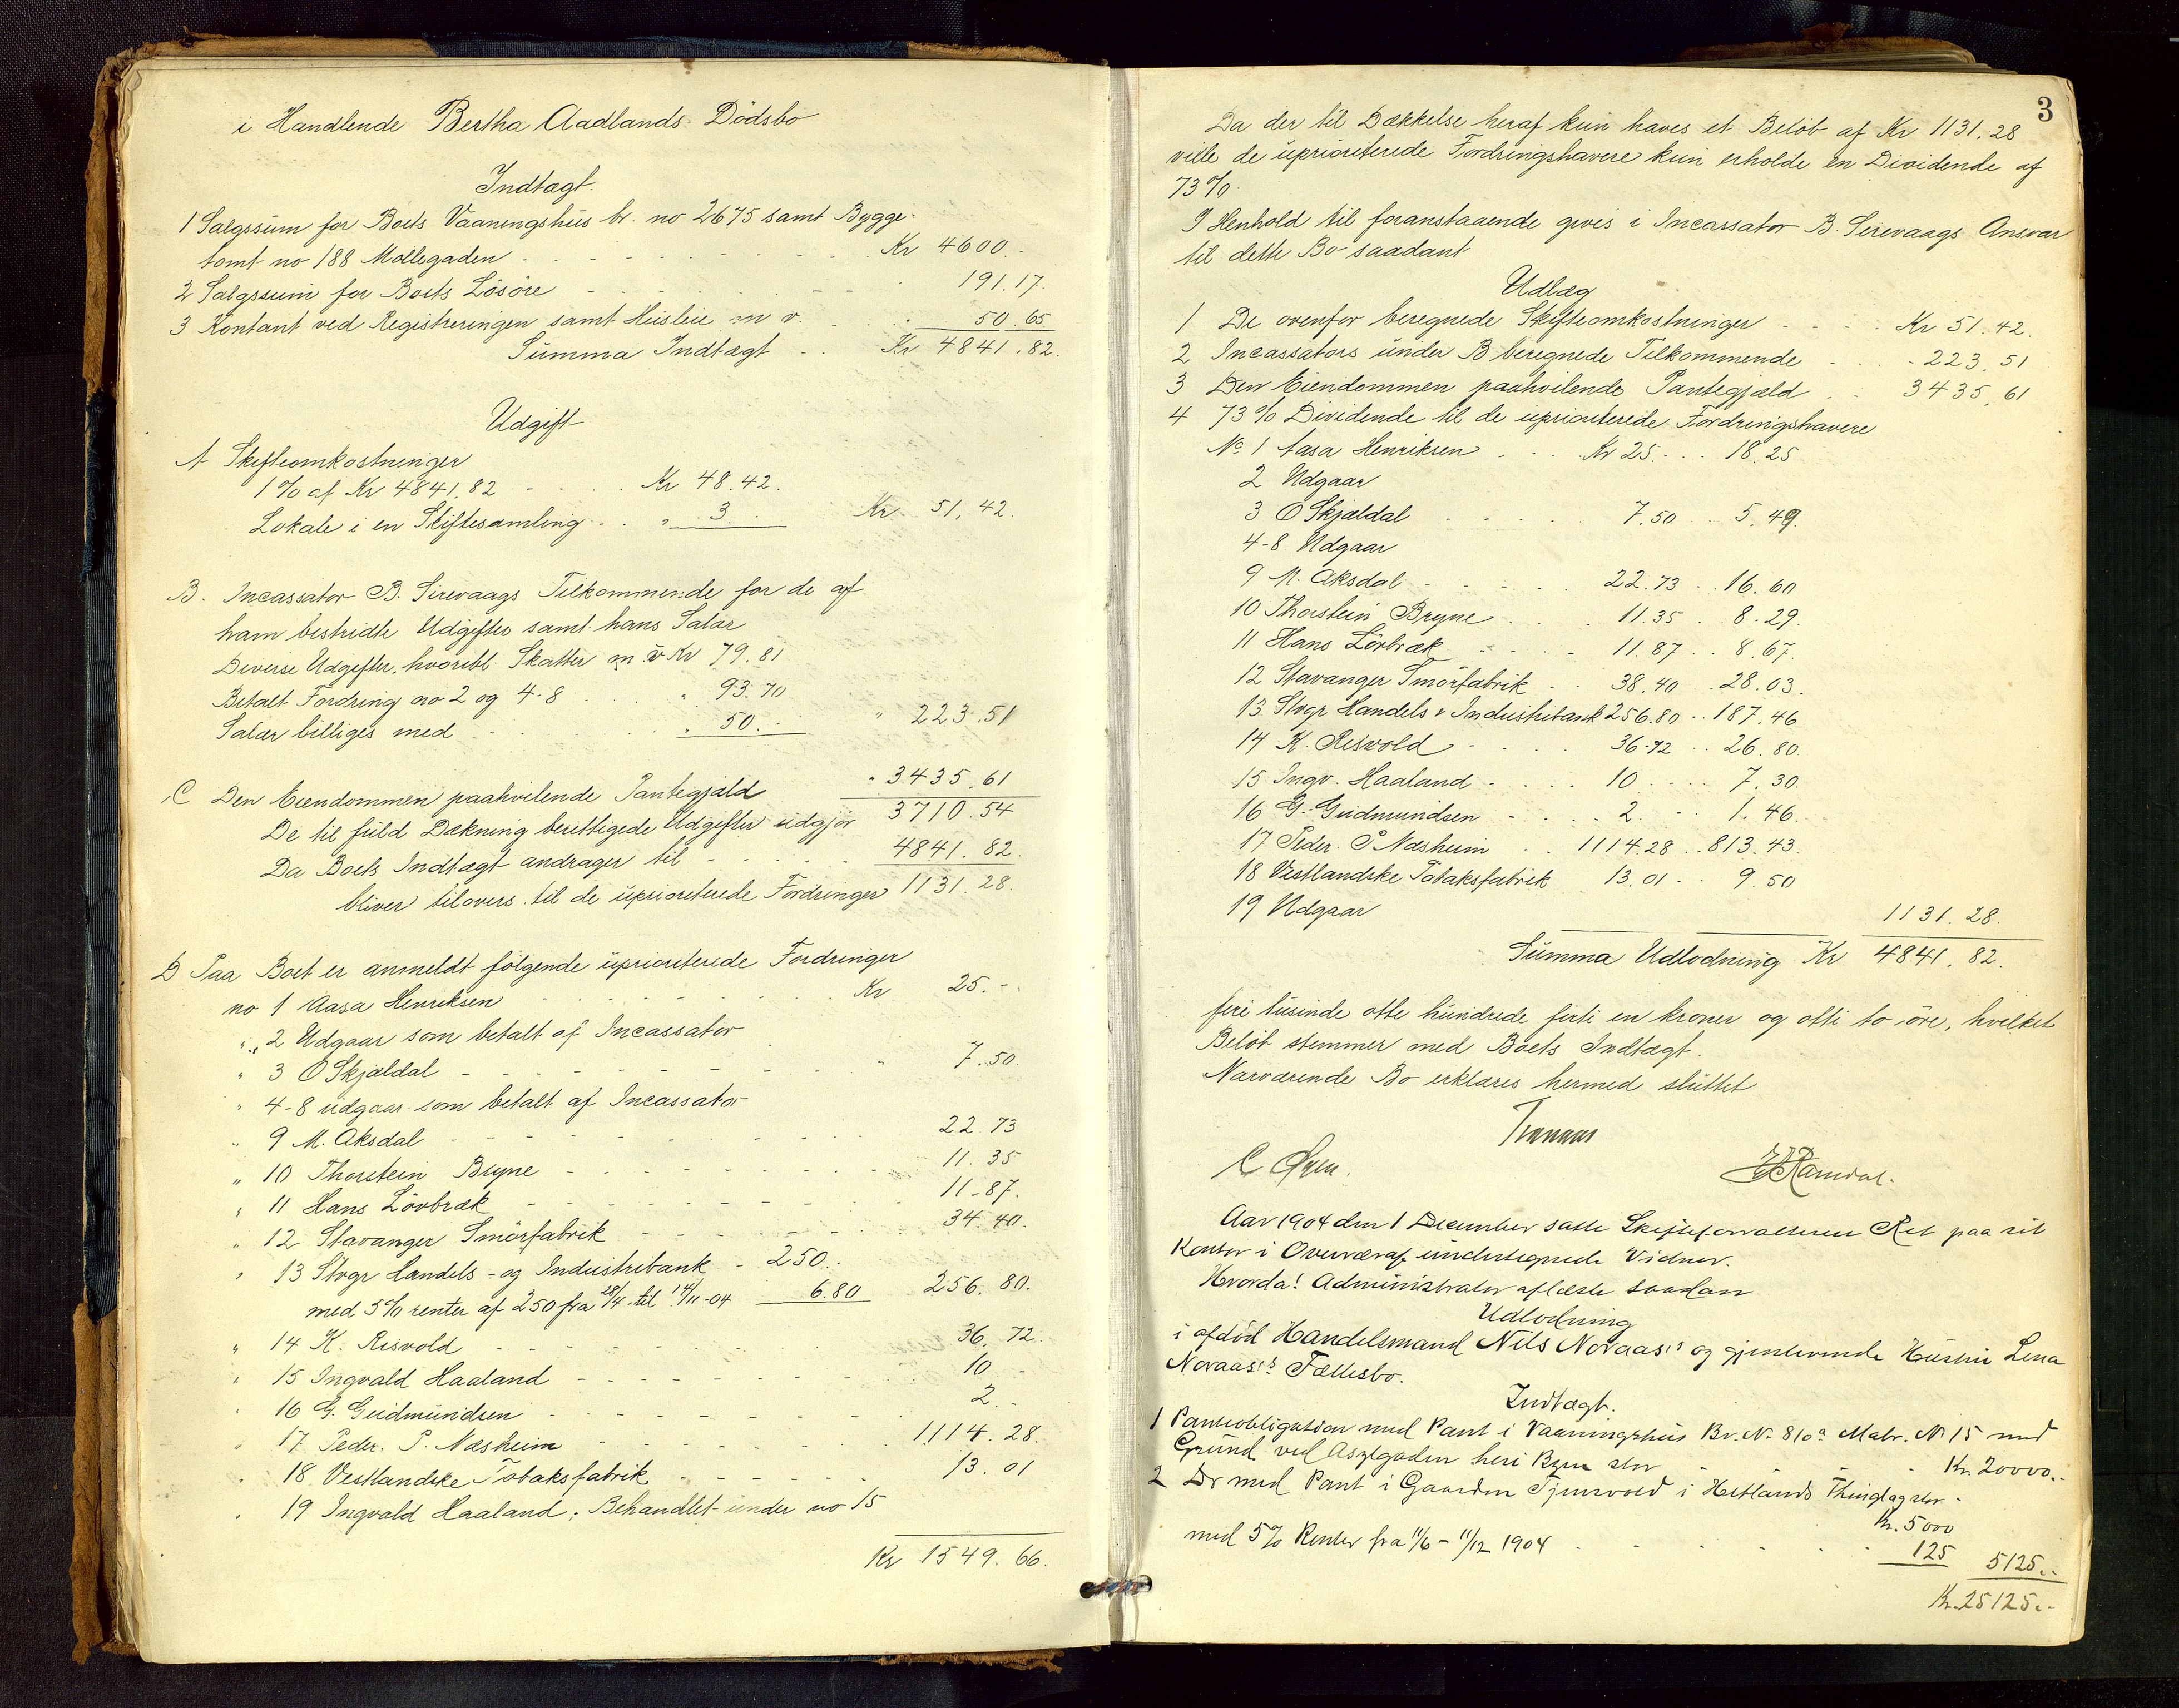 i Handlende Bertha Aadlands Dödsbo
Indtægt.
1 Salgssum for Boets Vaaningshus br. no 2675 samt Bygge-
tomt no 188 Möllegaden - - - Kr 4600.-
2 Salgssum for Boets Lösöre - - - 191.17.
3 Kontant ved Registreringen samt Husleie m v. - - 50.65
Summa Indtægt - - Kr 4841.82.
Udgift
A Skifteomkostninger
1% af Kr 4841.82 - - - Kr 48.42.
Lokale i en Skiftesamling - - " 3. Kr 51.42.
B. Incassator B. Sirevaags Tilkommende for de af
ham bestridte Udgifter samt hans Salær
Diverse Udgifter, hvoribl. Skatter m v Kr 79.81
Betalt Fordring no 2 og 4-8 - - " 93.70
Salær billiges med - - - " 50.- " 223.51
C Den Eiendommen paahvilende Pantegjæld " 3435.61
De til fuld Dækning berettigede Udgifter udgjör 3710.54
Da Boets Indtægt andrager til - - - 4841.82.
bliver tilovers til de uprioriterede Fordringer 1131.28.
D Paa Boet er anmeldt fölgende uprioriterede Fordringer
no 1 Aasa Henriksen - - - Kr 25.-
" 2 Udgaar som betalt af Incassator
" 3 O Skjældal - - - " 7.50
" 4-8 udgaar som betalt af Incassator
" 9 M. Aksdal - - - 22.73
" 10 Thorstein Bryne - - - 11.35
" 11 Hans Lövbræk - - - 11.87.
" 12 Stavanger Smörfabrik - - - 34.40.
" 13 Stvgr Handels- og Industribank - 250.-
med 5% renter af 250 fra 28/4 til 14/11-04 6.80 256.80.
" 14 K. Risvold - - - 36.72.
" 15 Ingvald Haaland - - - 10 -
" 16 G. Gudmundsen - - - 2.-
" 17 Peder. P. Næsheim - - - 1114.28.
" 18 Vestlandske Tobaksfabrik - - - 13.01
" 19 Ingvald Haaland; Behandlet under no 15
Kr 1549.66.
3
Da der til Dækkelse heraf kun haves et Belöb af Kr 1131.28
ville de uprioriterede Fordringshavere kun erholde en Dividende af
73%.
I Henhold til foranstaaende gives i Incassator B. Sirevaags Ansvar
til dette Bo saadant
Udlæg
1 De ovenfor beregnede Skifteomkostninger - - - Kr 51.42.
2 Incassators under B beregnede Tilkommende - - - 223.51
3 Den Eiendommen paahvilende Pantegjæld - - 3435.61
4 73% Dividende til de uprioriterede Fordringshavere
No 1 Aasa Henriksen - - Kr 25. - - 18.25
2 Udgaar
3 O Skjældal - - - 7.50 - - 5.49.
4-8 Udgaar
9 M. Aksdal - - - 22.73 - 16.60
10 Thorstein Bryne - - - 11.35 - 8.29.
11 Hans Lövbræk - - - 11.87 - 8.67.
12 Stavanger Smörfabrik - - 38.40 - 28.03.
13 Stvgr Handels & Industribank 256.80 - - 187.46
14 K. Risvold - - - 36.72 - - 26.80
15 Ingv. Haaland - - - 10 - - - 7.30.
16 G. Gudmundsen - - - 2. - - 1.46.
17 Peder. P Næsheim - - 1114.28 - - 813.43.
18 Vestlandske Tobaksfabrik 13.01 - - 9.50
19 Udgaar 1131.28.
Summa Udlodning Kr 4841.82.
firi tusinde otte hundrede firti en kroner og otti to öre, hvilket
Belöb stemmer med Boets Indtægt.
Nærværende Bo erklæres hermed sluttet
C Öyen.
Aar 1904 den 1 December satte Skifteforvalteren Ret paa sit
Kontor i Overvær af undertegnede Vidner.
Hvorda: Administrator aflæste saadan
Udlodning
i afdöd Handelsmand Nils Noraas's og gjenlevende Hustru Lena
Noraas's Fællesbo.
Indtægt.
1 Pantobligation med Pant i Vaaningshus Br. No 810a Matr. No 15 med
Grund ved Asylgaden heri Byen stor - - Kr. 20000.-
2 Do med Pant i Gaarden Tjensvold i Hetlands Thinglag stor -
Kr. 5000
med 5% Renter fra 11/6 - 11/12 1904 - - - 125 5125.-
Kr. 25125.-